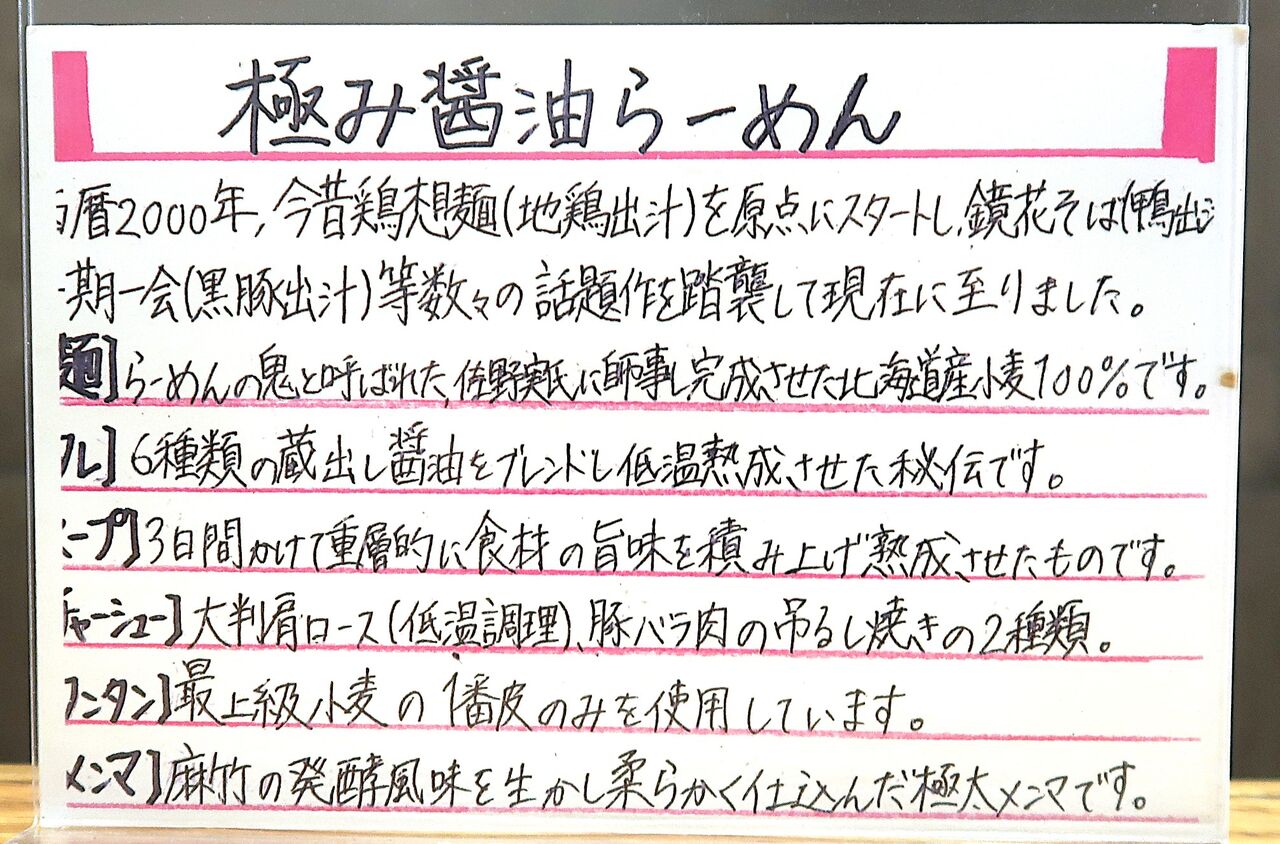 極み醤油らーめん
暦2000年,今昔鶏想麺(地鶏出汁)を原点にスタートし、鏡花そば(鴨出汁
期一会(黒豚出汁)等数々の話題作を踏襲して現在に至りました。
麺】らーめんの鬼と呼ばれた、佐野実氏に師事し完成させた北海道産小麦100%です。
ル】6種類の蔵出し醤油をブレンドし低温熟成させた秘伝です。
ープ】3日間かけて重層的に食材の旨味を積み上げ熟成させたものです。
チャーシュー】大判肩ロース(低温調理)、豚バラ肉の吊るし焼きの2種類。
ワンタン】最上級小麦の1番皮のみを使用しています。
メンマ】麻竹の発酵風味を生かし柔らかく仕込んだ極太メンマです。